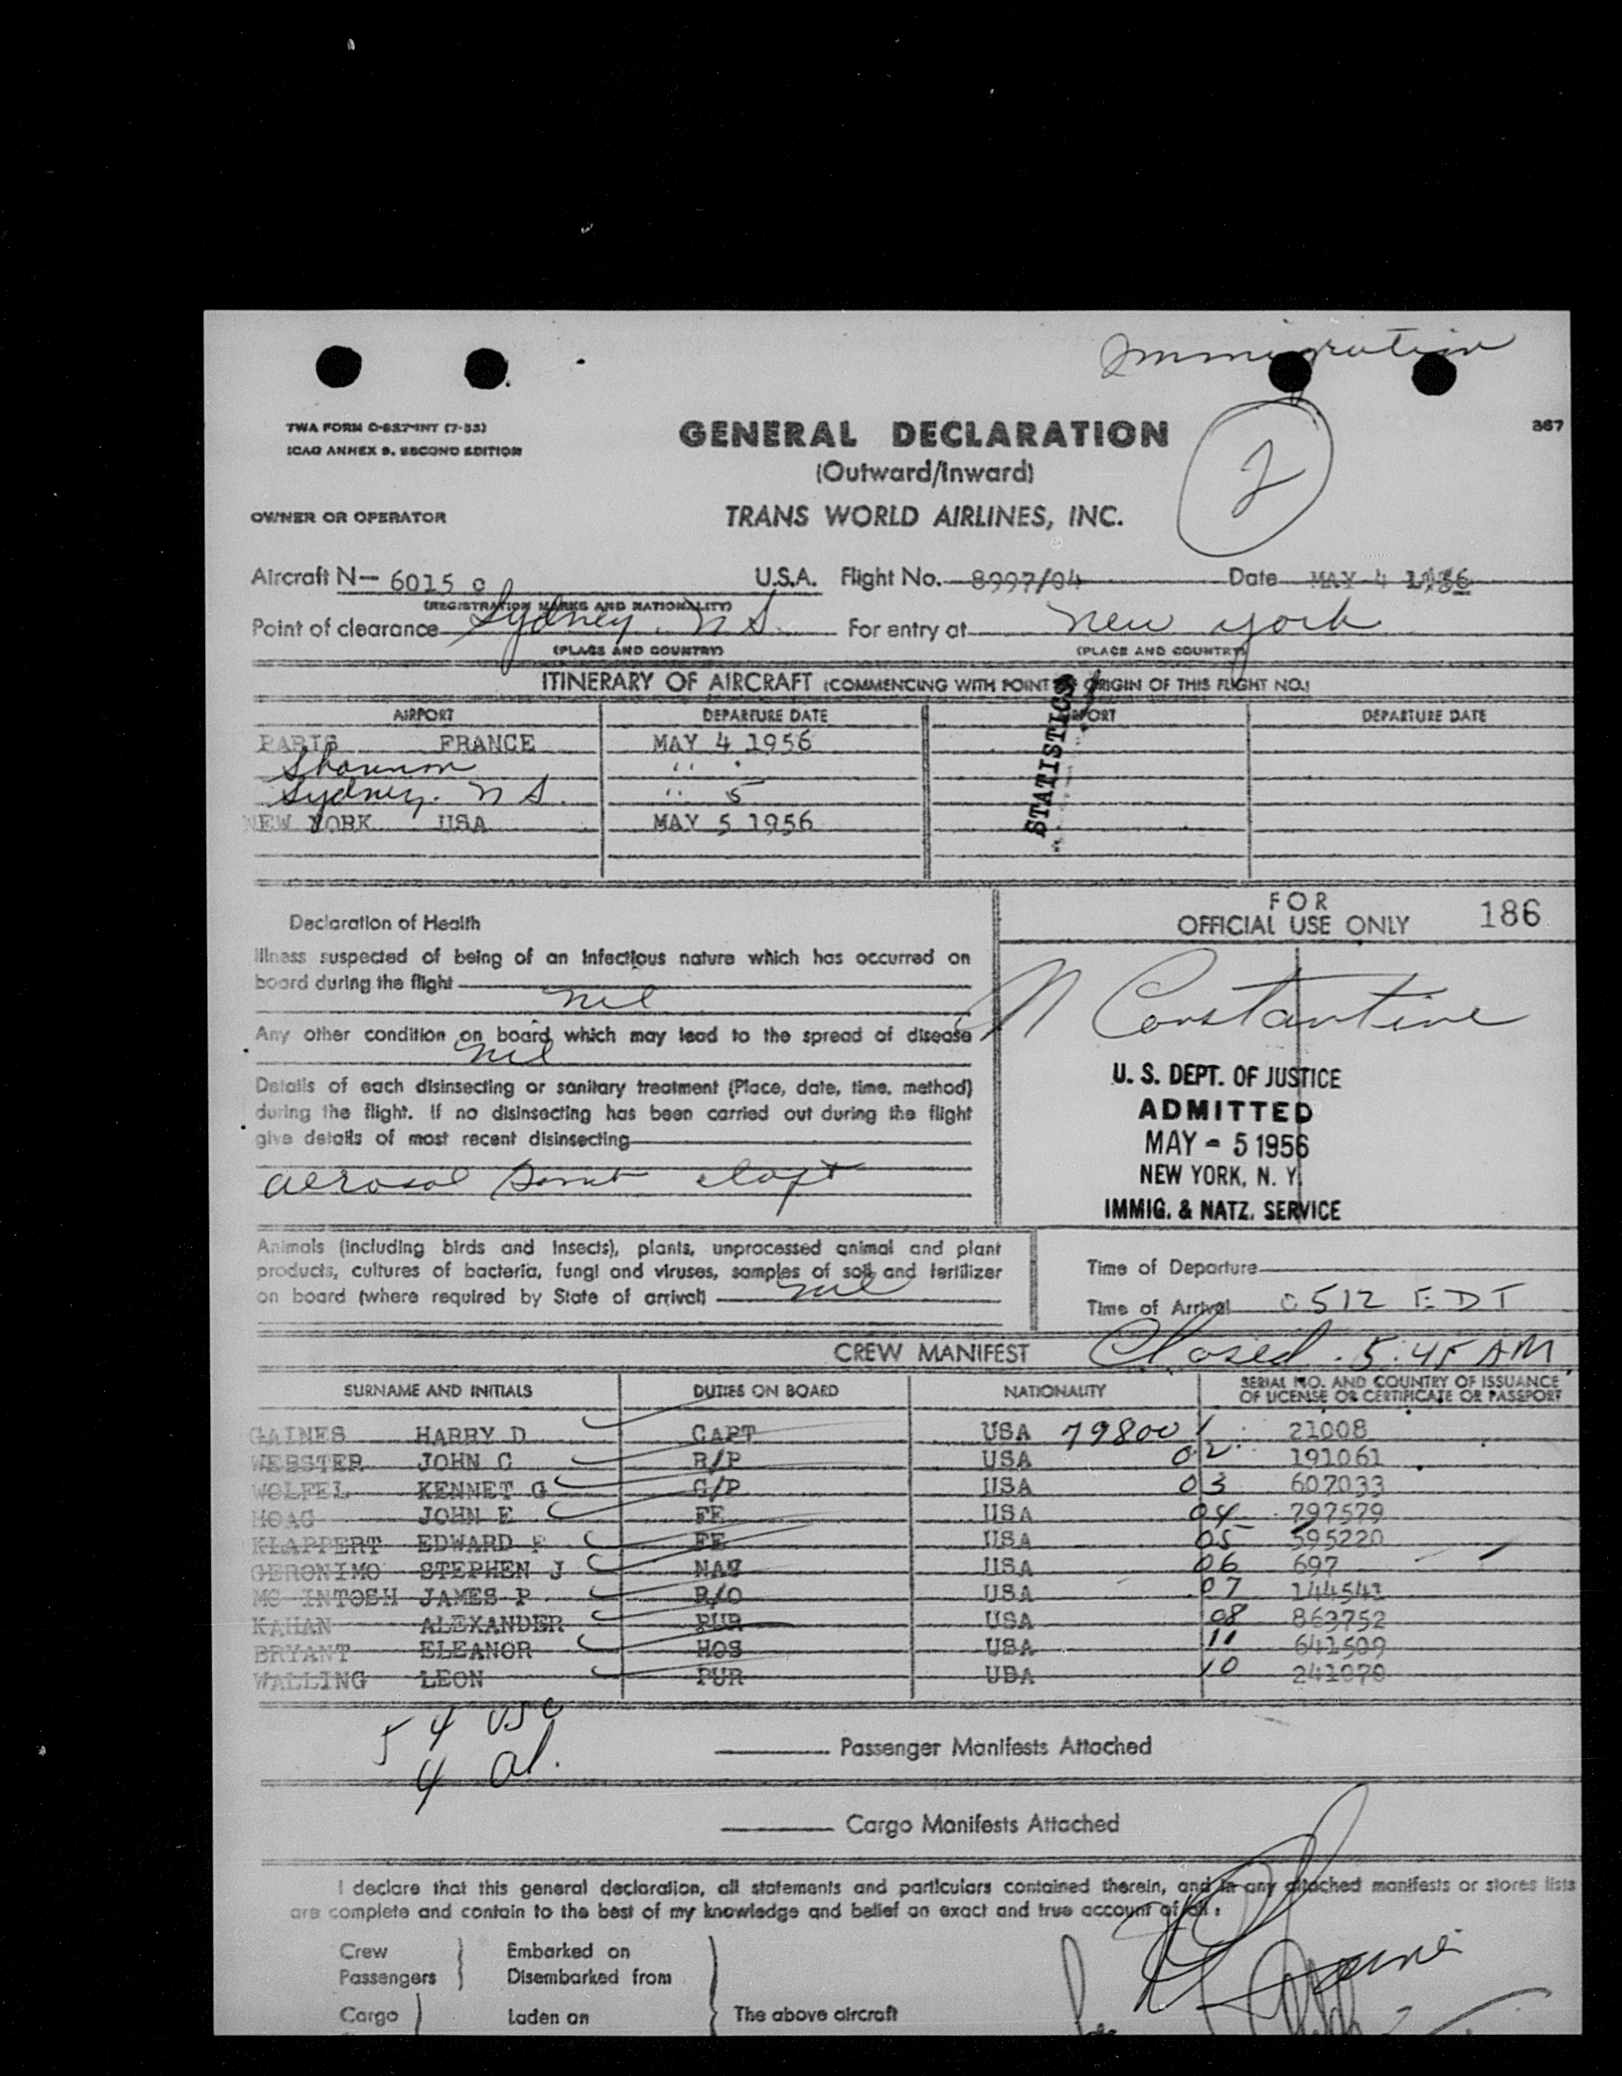 Immigration
TWA FORM O-827-INT (7-53)
ICAO ANNEX 9, SECOND EDITION
GENERAL DECLARATION
(Outward/Inward)
2
367
OWNER OR OPERATOR
TRANS WORLD AIRLINES, INC.
Aircraft N— 6015 C U.S.A. Flight No. 8997/04 Date MAY 4 1956
(REGISTRATION MARKS AND NATIONALITY)
Point of clearance Sydney, N S. For entry at New York
(PLACE AND COUNTRY) (PLACE AND COUNTRY)
ITINERARY OF AIRCRAFT (COMMENCING WITH POINT OF ORIGIN OF THIS FLIGHT NO.)
STATISTICS
AIRPORT DEPARTURE DATE AIRPORT DEPARTURE DATE
PARIS FRANCE MAY 4 1956
Shannon " "
Sydney. N S. " 5
NEW YORK USA MAY 5 1956
FOR
OFFICIAL USE ONLY 186
Declaration of Health
Illness suspected of being of an infectious nature which has occurred on
board during the flight
nil
Any other condition on board which may lead to the spread of disease
nil
Details of each disinsecting or sanitary treatment (Place, date, time, method)
during the flight. If no disinsecting has been carried out during the flight
give details of most recent disinsecting
aerosol
N Constantine
U. S. DEPT. OF JUSTICE
ADMITTED
MAY - 5 1956
NEW YORK, N. Y.
IMMIG. & NATZ. SERVICE
Animals (including birds and insects), plants, unprocessed animal and plant
products, cultures of bacteria, fungi and viruses, samples of soil and fertilizer
on board (where required by State of arrival) nil
Time of Departure
Time of Arrival 0512 EDT
CREW MANIFEST Closed. 5:45 AM
SURNAME AND INITIALS DUTIES ON BOARD NATIONALITY SERIAL NO. AND COUNTRY OF ISSUANCE
OF LICENSE OR CERTIFICATE OR PASSPORT
GAINES HARRY D CAPT USA 79800 1 21008
WEBSTER JOHN C R/P USA 02 191061
WOLFEL KENNET G C/P USA 03 607033
HOAG JOHN E FE USA 04 797579
KLAPPERT EDWARD F FE USA 05 595220
GERONIMO STEPHEN J NAV USA 06 697
MC INTOSH JAMES P R/O USA 07 144541
KAHAN ALEXANDER PUR USA 08 863752
BRYANT ELEANOR HOS USA 11 641509
WALLING LEON PUR USA 10 241070
54 USC
4 al.
Passenger Manifests Attached
Cargo Manifests Attached
I declare that this general declaration, all statements and particulars contained therein, and in any attached manifests or stores lists
are complete and contain to the best of my knowledge and belief an exact and true account of all:
Crew
Passengers
Embarked on
Disembarked from
Cargo Laden on The above aircraft